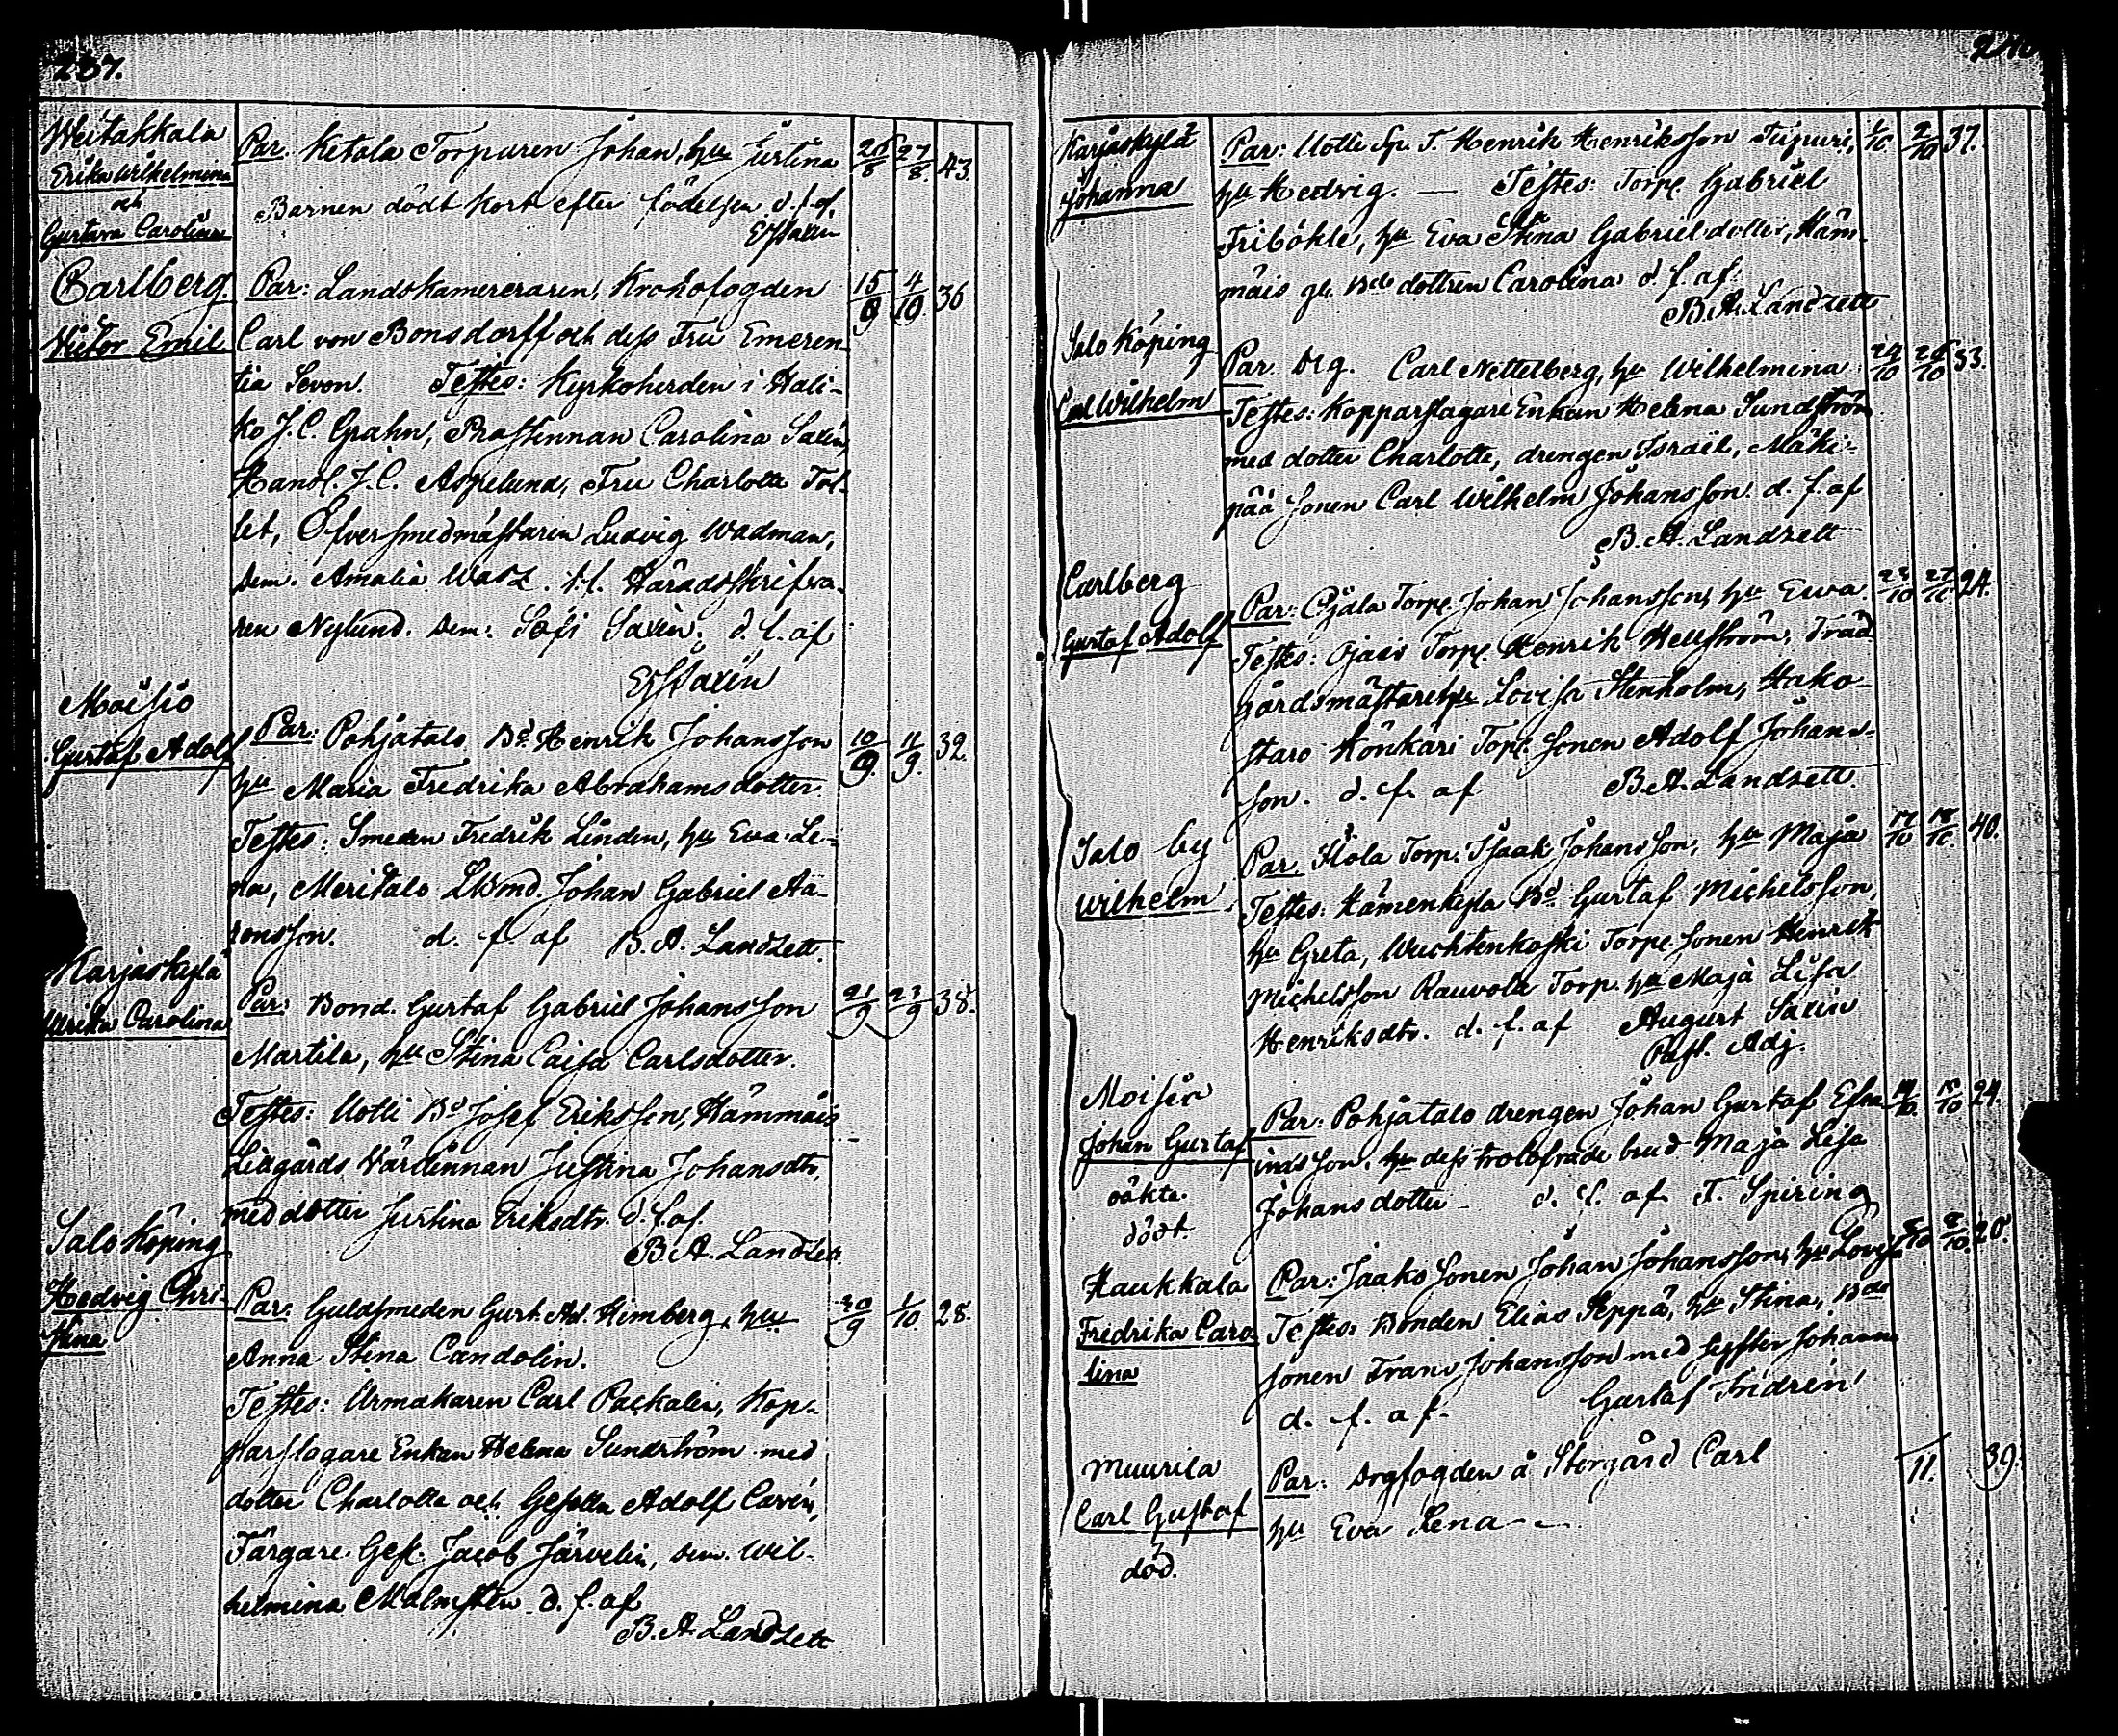 237.
Weitakkala
Erika Wilhelmina
och
Gustava Carolina
Par. Ketala Torparen Johan, hu Justina 26/8 27/8. 43.
Barnen dödt kort efter födelsen d. f. af
Carlberg
Victor Emil
Par: Landskamereraren, Kronofogden 15/9 4/10 36
Carl von Bonsdorff och dess Fru Emeren-
tia Sevon. Testes: Kyrkoherden i Hali-
ko J. C. Grahn, Prostinnan Carolina Saxén,
Handl. J. C. Aspelund, Fru Charlotta Tal-
let, Öfversmedmästaren Ludvig Wadman,
Dem. Amalia t.f. Häradsskrifva-
ren Nylund. Dem: Sofi Saxén. d. f. af
Moisio
Gustaf Adolf
Par: Pohjatalo Bd. Henrik Johansson 10/9. 11/9. 32.
hu Maria Fredrika Abrahamsdotter.
Testes: Smeden Fredrik Linden, hu Eva Le-
na, Meritalo Johan Gabriel Aa-
ronsson. d. f. af B. A. Landzett.
Karjaskylä
Ulrika Carolina
Par: Bond. Gustaf Gabriel Johansson 21/9 23/9 38.
Martila, hu Stina Caisa Carlsdotter.
Testes: Uotli Bd Josef Eriksson, Hämmäis
Liagårds Värdinnan Justina Johansdtr,
med dotter Justina Eriksdtr. d. f. af.
B. A. Landzett.
Salo Köping
Hedvig Chri-
stina
Par: Guldsmeden Gust. Ad. Himberg, hu 30/9 1/10. 28.
Anna Stina Candolin.
Testes: Urmakaren Carl Packalen, Kop-
parslagare Enkan Helena Sundström med
dotter Charlotta och Gesällen Adolf Cavén,
Färgare Ges. Jacob Järvelin, Dem. Wil-
helmina Malmsten. d. f. af
B. A. Landzett
Karjaskylä
Johanna
Par: Uotli Sp. T. Henrik Henriksson 1/10. 2/10 37.
hu Hedvig. — Testes: Torp. Gabriel
Fribökle, hu Eva Stina Gabrielsdotter, Häm-
mäis gl. Bds dottren Carolina d. f. af.
B. A. Landzett
Salo Köping
Carl Wilhelm
Par. Carl Nettelberg, hu Wilhelmina 24/10 26/10 33.
Testes: Kopparslagare Enkan Helena Sundström
med dotter Charlotte, drengen Israël, Mäki-
pää sonen Carl Wilhelm Johansson. d. f. af
B. A. Landzett
Carlberg
Gustaf Adolf
Par: Torp. Johan Johansson, hu Ewa. 23/10 27/10. 24.
Testes: Torp. Henrik Hellström, Träd-
gårdsmästare hu Lovisa Stenholm, Hako-
staro Könkäri Torp. sonen Adolf Johans-
son. d. f. af B. A. Landzett.
Salo by
Wilhelm
Par. Torp. Isaak Johansson, hu Maja 17/10 18/10. 40.
Testes: Hämenkylä Bd. Gustaf Michelsson,
hu Greta, Wuohtenkoski Torp. sonen Henrik
Michelsson Rauvola Torp. hu Maja Lisa
Henriksdtr. d. f. af August Saxén
Past. Adj.
Moisio
Johan Gustaf
oäkta.
dödt.
Par: Pohjatalo drengen Johan Gustaf 24.
hu dess trolofvade brud Maja Lisa
Johansdotter d. f. af F. Spiring
Haukkala
Fredrika Caro-
lina
Par: Jaako sonen Johan Johansson, hu Lovisa 20.
Testes: Bonden Elias Seppä, hu Stina, Bde
sonen Frans Johansson med syster Johanna
d. f. af. Gustaf Fridrén
Muurila
Carl Gustaf
död.
Par: å Storgård Carl 11. 39.
hu Eva Lena